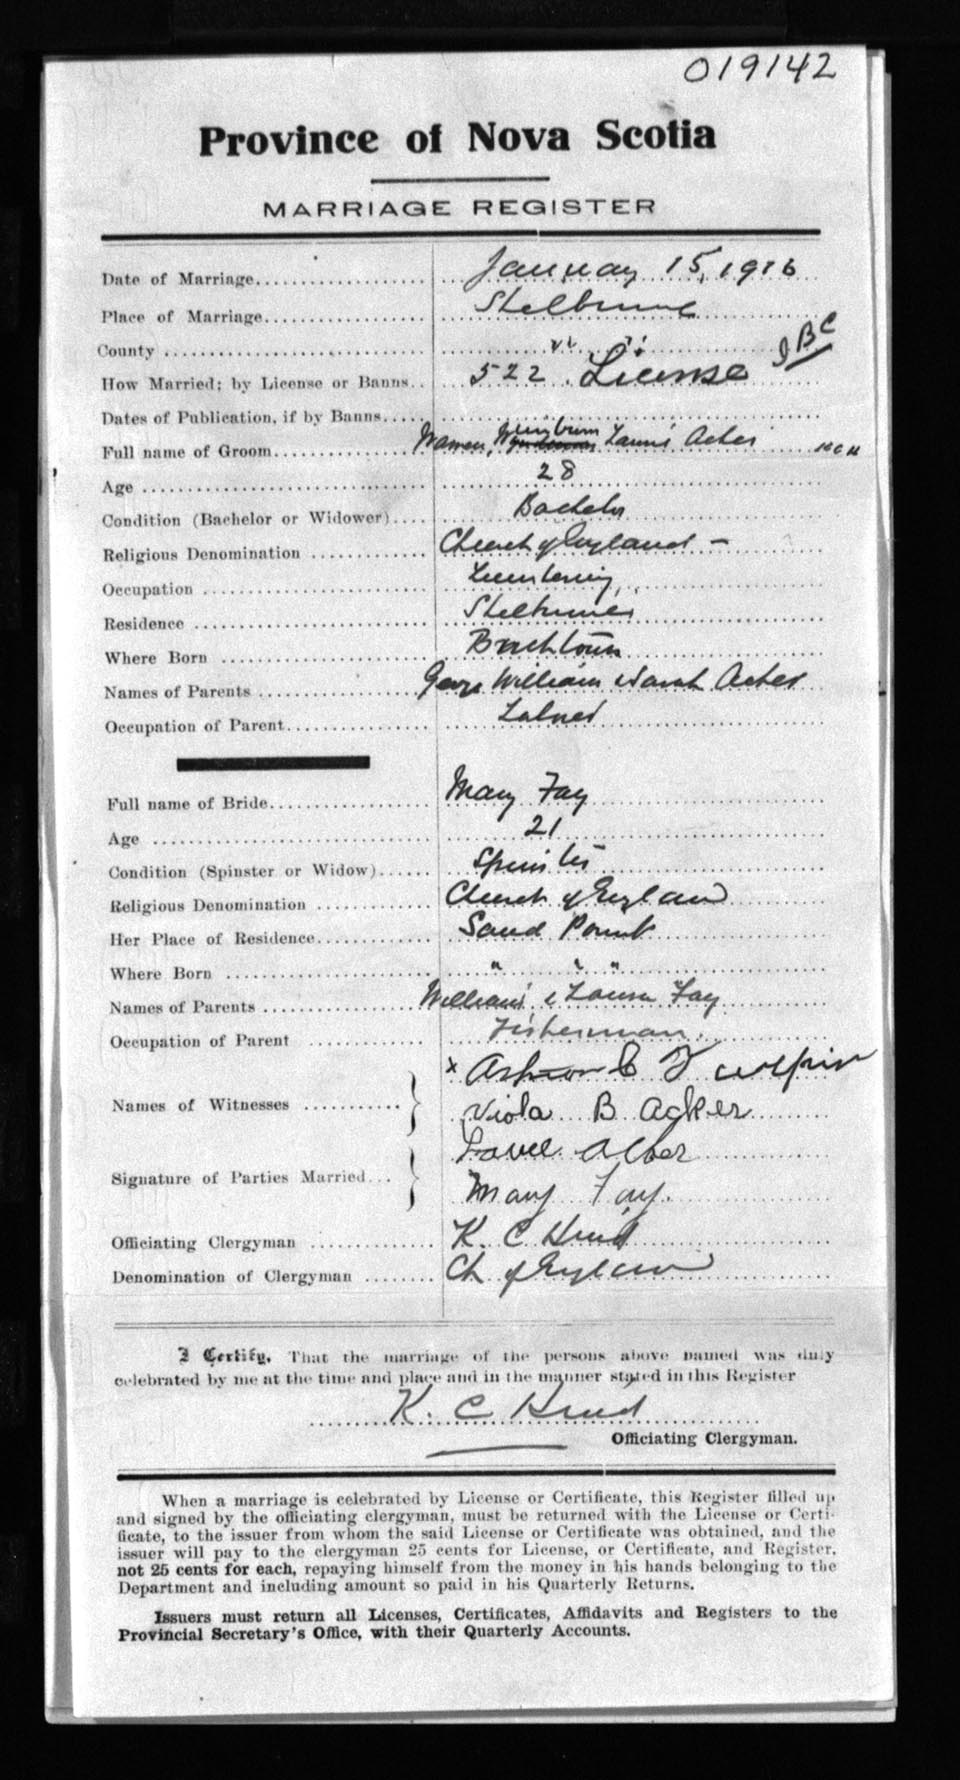 019142
Province of Nova Scotia
MARRIAGE REGISTER
Date of Marriage.................... January 15, 1916
Place of Marriage.................... Shelburne
County .................... " "
JBC
How Married; by License or Banns.. 522 License
Dates of Publication, if by Banns.....
Full name of Groom.................... Acker
Age .................... 28
Condition (Bachelor or Widower).... Bachelor
Religious Denomination ............ Church of England -
Occupation .................... Lumbering
Residence .................... Shelburne
Where Born .................... Birchtown
Names of Parents .................... William & Sarah Acker
Occupation of Parent............... Laborer
Full name of Bride............... Mary Fay
Age .................... 21
Condition (Spinster or Widow)...... Spinster
Religious Denomination ............ Church of England
Her Place of Residence............ Sand Point
Where Born .................... " " "
Names of Parents .................... William & Laura Fay
Occupation of Parent ............ Fisherman
x
Names of Witnesses ........... Viola B Acker
Signature of Parties Married...
Mary Fay.
Officiating Clergyman ............ K. C Hind
Denomination of Clergyman ........ Ch of England
I Certify, That the marriage of the persons above named was duly
celebrated by me at the time and place and in the manner stated in this Register
K. C Hind
Officiating Clergyman.
When a marriage is celebrated by License or Certificate, this Register filled up
and signed by the officiating clergyman, must be returned with the License or Certi-
ficate, to the issuer from whom the said License or Certificate was obtained, and the
issuer will pay to the clergyman 25 cents for License, or Certificate, and Register,
not 25 cents for each, repaying himself from the money in his hands belonging to the
Department and including amount so paid in his Quarterly Returns.
Issuers must return all Licenses, Certificates, Affidavits and Registers to the
Provincial Secretary's Office, with their Quarterly Accounts.